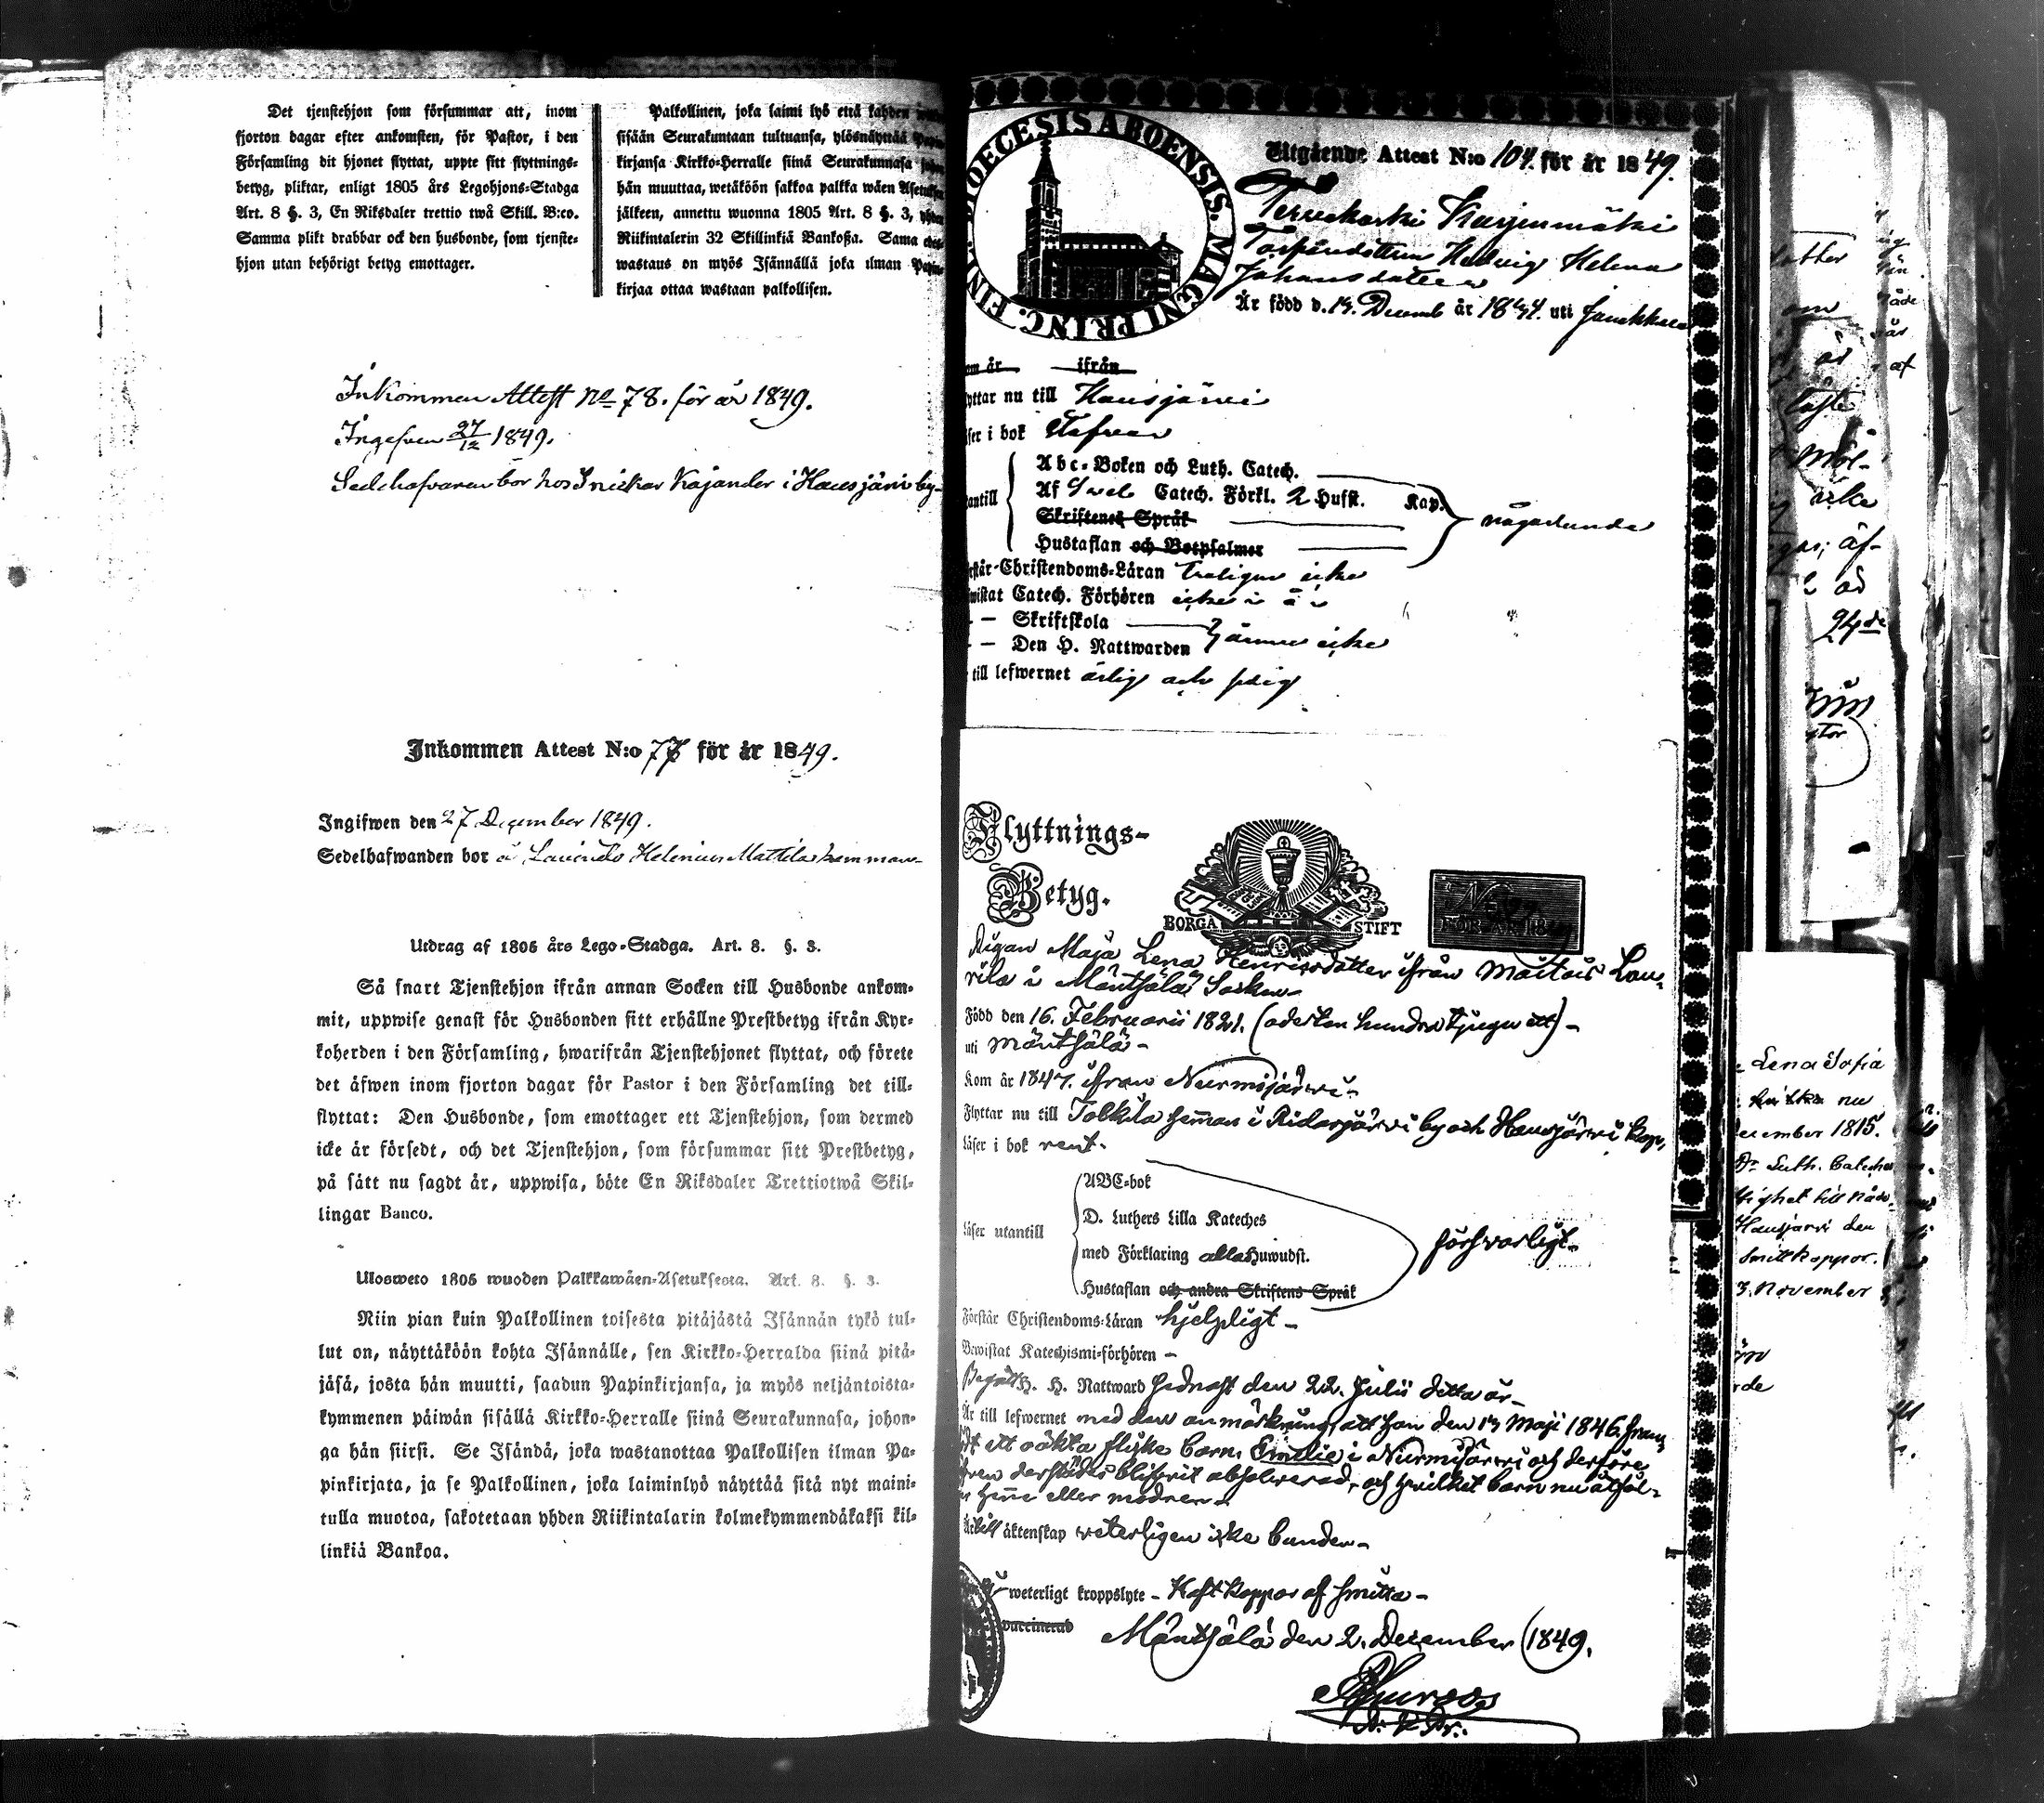 Det tjenstehjon som försummar att, inom
fjorton dagar efter ankomsten, för Pastor, i den
Församling dit hjonet flyttat, uppte sitt flyttnings-
betyg, pliktar, enligt 1805 års Legohjons-Stadga
Art. 8 §. 3, En Riksdaler trettio twå Skill. B:co.
Samma plikt drabbar ock den husbonde, som tjenste-
hjon utan behörigt betyg emottager.
Palkollinen, joka laimi lyö että kahden
sisään Seurakuntaan tultuansa, ylösnäyttää
kirjansa Kirkko-Herralle siinä Seurakunnasa
hän muuttaa, wetäköön sakkoa palkka wäen
jälkeen, annettu wuonna 1805 Art. 8 §. 3, yhden
Riikintalerin 32 Skillinkiä Bankoßa. Sama
wastaus on myös Isännällä joka ilman
kirjaa ottaa wastaan palkollisen.
Inkommen Attest No 78. för år 1849.
Ingifven 27/12 1849.
Sedelhafvaren bor hos Snickar Kajander i Hausjärvi by
Inkommen Attest N:o 77 för år 1849.
Ingifwen den 27 December 1849.
Sedelhafwanden bor å Helenius Mattila hemman
Utdrag af 1805 års Lego-Stadga. Art. 8. §. 3.
Så snart Tjenstehjon ifrån annan Socken till Husbonde ankom-
mit, uppwise genast för Husbonden sitt erhållne Prestbetyg ifrån Kyr-
koherden i den Församling, hwarifrån Tjenstehjonet flyttat, och förete
det äfwen inom fjorton dagar för Pastor i den Församling det till-
flyttat: Den Husbonde, som emottager ett Tjenstehjon, som dermed
icke är försedt, och det Tjenstehjon, som försummar sitt Prestbetyg,
på sätt nu sagdt är, uppwisa, böte En Riksdaler Trettiotwå Skil-
lingar Banco.
Ulosweto 1805 wuoden Palkkawäen-Asetuksesta. Art. 8. §. 3.
Niin pian kuin Palkollinen toisesta pitäjästä Isännän tykö tul-
lut on, näyttäköön kohta Isännälle, sen Kirkko-Herralda siinä pitä-
jäsä, josta hän muutti, saadun Papinkirjansa, ja myös neljäntoista-
kymmenen päiwän sisällä Kirkko-Herralle siinä Seurakunnasa, johon-
ga hän siirsi. Se Isändä, joka wastanottaa Palkollisen ilman Pa-
pinkirjata, ja se Palkollinen, joka laiminlyö näyttää sitä nyt maini-
tulla muotoa, sakotetaan yhden Riikintalarin kolmekymmendäkaksi kil-
linkiä Bankoa.
DIOECESIS ABOENSIS. MAGNI PRINC. FINL.
Utgående Attest N:o 104. för år 1849.
Terriskaski Harjunmäki
Torpardottren Hedvig Helena
Johansdotter
Är född d. 14. Decemb år 1834. uti Janakkala
om år ifrån
yttar nu till Hausjärvi
ser i bok Stafvar
antill
Abc-Boken och Luth. Catech.
Af Sveb Catech. Förkl. 2 Hufst. Kap.
Skriftenes Språk
Hustaflan och Botpsalmer
någorlunda
rstår Christendoms-Läran troligen icke
wistat Catech. Förhören icke i år
- - Skriftskola
- - Den H. Nattwarden } ännu icke
till lefwernet ärlig och sedig
Flyttnings-
Betyg.
BORGÅ STIFT
FÖR ÅR 1849
Pigan Maja Lena Henricsdotter ifrån Lau-
rila i Mäntsälä Socken
Född den 16. Februarii 1821. (aderton hundra tjugu ett) -
uti Mäntsälä -
Kom år 1847. ifrån Nurmijärvi -
Flyttar nu till Tolkila heman i Ridasjärvi by och Hausjärvi kap,
läser i bok rent.
läser utantill
ABC-bok
D. Luthers Lilla Kateches
med Förklaring alla Huwudst.
Hustaflan och andra Skriftens Språk
försvarligt -
Förstår Christendoms-Läran hjelpligt -
Bewistat Katechismi-förhören -
Begått H. H. Nattward sednast den 22. Julii detta år -
Är till lefwernet med den anmärkning, att hon den 13 Maji 1846. fram-
ett oäkta flicke barn Emilie i Nurmijärvi och derföre
derstädes blifvit absolverad, och hwilket barn nu åtföl-
henne eller modren -
Är till äktenskap veterligen icke bunden -
weterligt kroppslyte - Haft koppor af smitta -
vaccinerad
Mäntsälä den 2. December 1849.
Lena Sofia
nu
December 1815.
Luth. Catech
Hausjärvi den
Smittkoppor.
3. November